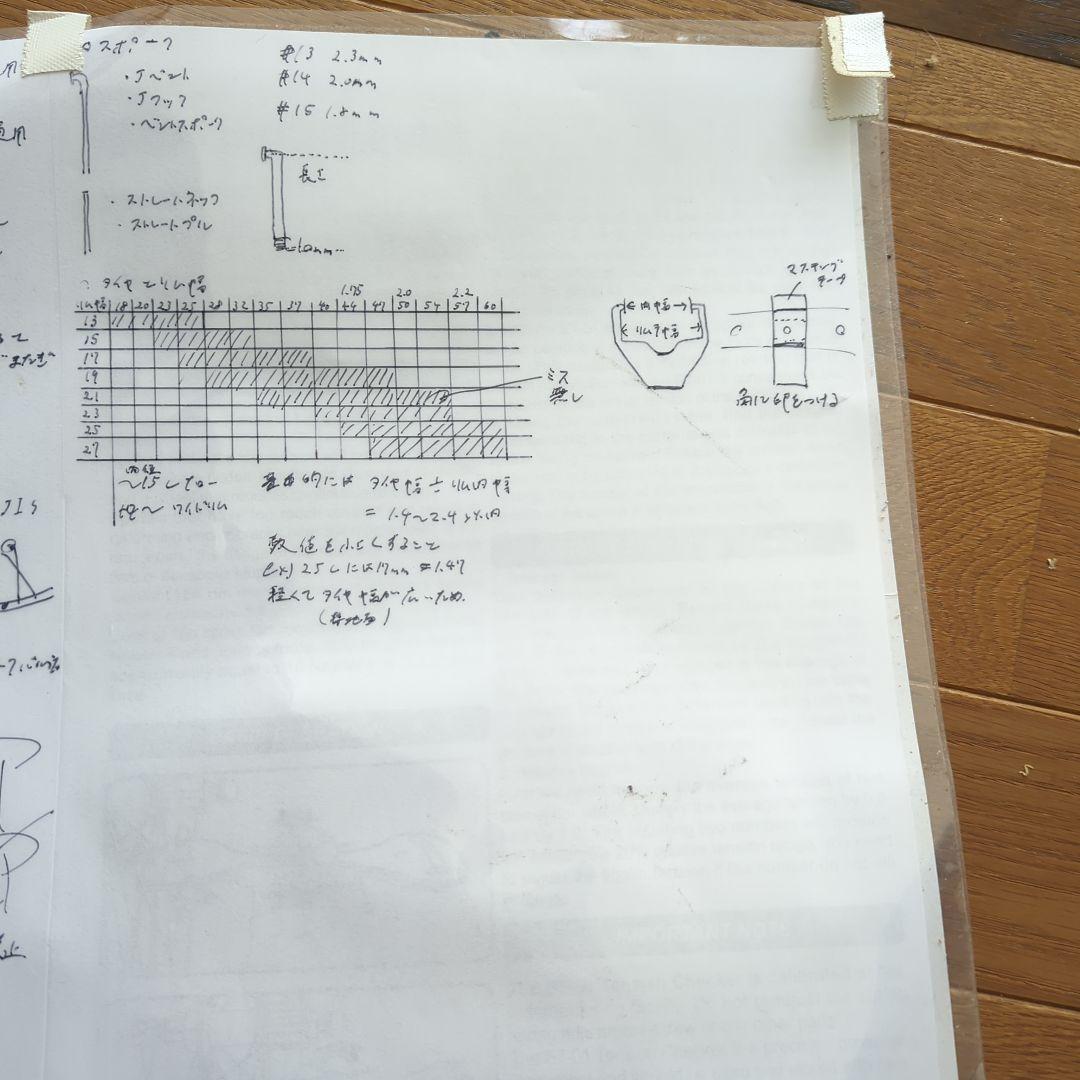 スポーク
・Jベント
・Jフック
・ベントスポーク
#13 2.3mm
#14 2.0mm
#15 1.8mm
長さ
10mm
・ストレートネック
・ストレートプル
タイヤとリム幅
1.75 2.0 2.2
リム幅 18 20 23 25 28 32 35 37 40 44 47 50 54 57 60
13
15
17
19
21
23
25
27
ミス
無し
内幅
リム幅
マスキング
テープ
角に印をつける
内径
〜15 ナロー
〜 ワイドリム
基本的には タイヤ幅 ÷ リム内幅
= 1.4〜2.4 以内
数値を小さくすること
ex) 25Cには17mm ≒1.47
軽くてタイヤ幅が広いため
(接地面)
用
JIS